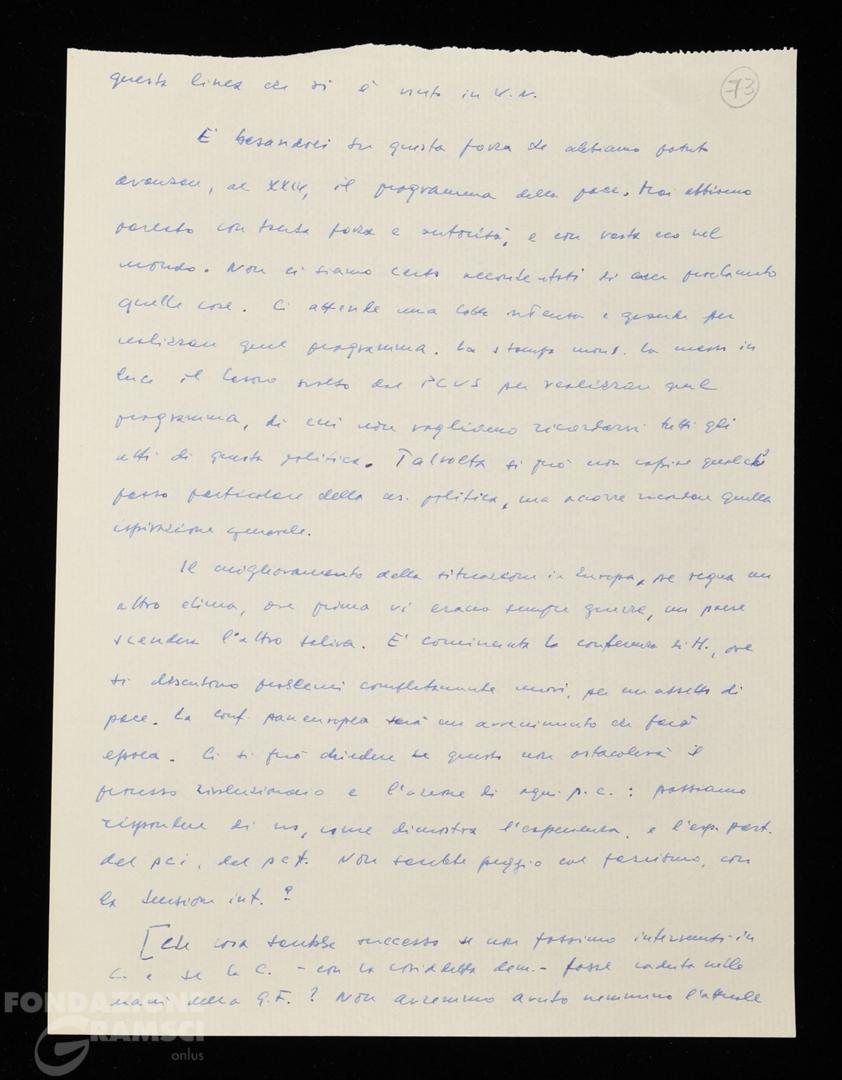 73
questa linea che si è vinto in V.N.
È basandoci su questa forza che abbiamo potuto
avanzare, al XXIV, il programma della pace. Noi abbiamo
parlato con tanta forza e autorità, e con vasta eco nel
mondo. Non ci siamo certo accontentati di aver proclamato
quelle cose. Ci attende una lotta intensa e grande per
realizzare quel programma. La stampa mond. ha messo in
luce il lavoro svolto dal PCUS per realizzare quel
programma, di cui non vogliamo ricordarvi tutti gli
atti di questa politica. Talvolta si può non capire qualche
passo particolare della ns. politica, ma occorre ricordare quella
ispirazione generale.
Il miglioramento della situazione in Europa, ove regna un
altro clima, ove prima vi erano sempre guerre, un paese
scendeva l'altro saliva. È cominciata la conferenza di H., ove
si discutono problemi completamente nuovi, per un assetto di
pace. La conf. paneuropea sarà un avvenimento che farà
epoca. Ci si può chiedere se questo non ostacolerà il
processo rivoluzionario e l'azione di ogni p.c.: possiamo
rispondere di no, come dimostra l'esperienza, e l'esp. part.
del pci, del pcf. Non sarebbe peggio col fascismo, con
la tensione int.?
[Che cosa sarebbe successo se non fossimo intervenuti in
C. e se la C. - con la cosiddetta dem. - fosse caduta nelle
mani della G.F.? Non avremmo avuto nemmeno l'attuale
FONDAZIONE
GRAMSCI
onlus